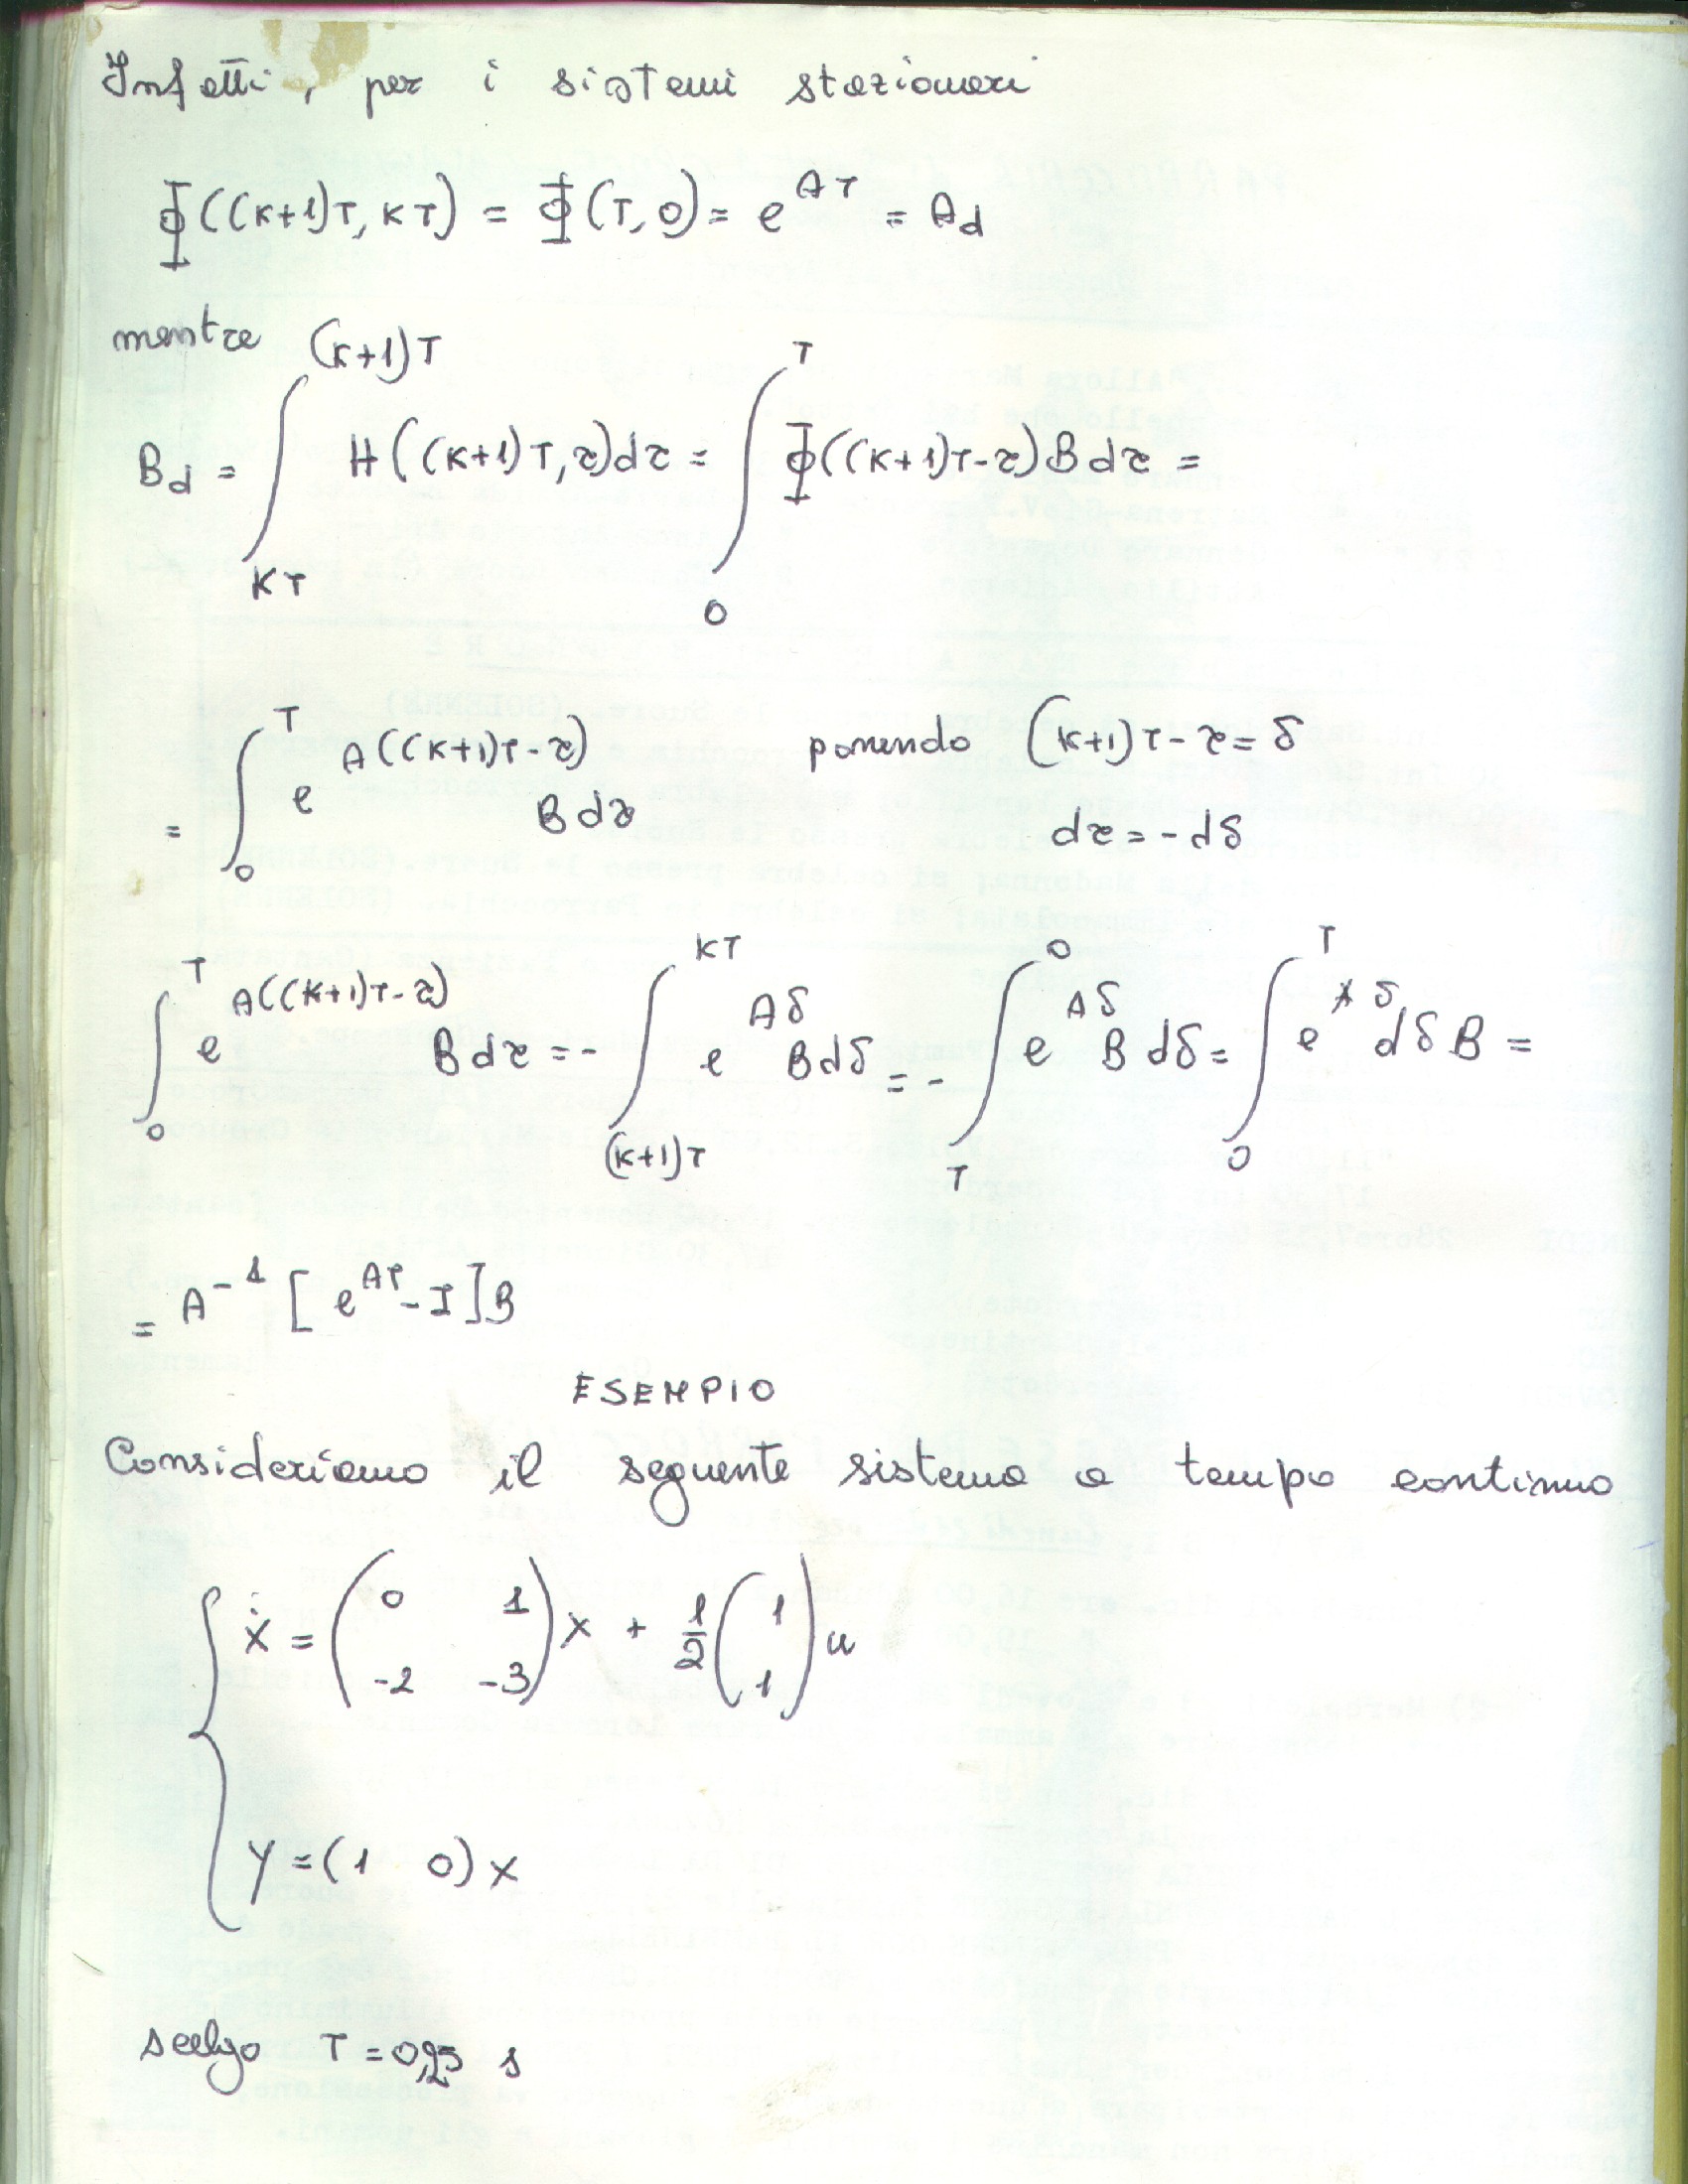 Infatti, per i sistemi stazionari
Φ((K+1)T, KT) = Φ(T, 0) = e^{AT} = A_d
mentre
B_d = ∫_{KT}^{(K+1)T} H((K+1)T, τ)dτ = ∫_0^T Φ((K+1)T-τ)B dτ =
= ∫_0^T e^{A((K+1)T-τ)} B dτ ponendo (K+1)T-τ = δ
dτ = -dδ
∫_0^T e^{A((K+1)T-τ)} B dτ = - ∫_{(K+1)T}^{KT} e^{Aδ} B dδ = - ∫_T^0 e^{Aδ} B dδ = ∫_0^T e^{Aδ} dδ B =
= A^{-1} [e^{AT} - I] B
ESEMPIO
Consideriamo il seguente sistema a tempo continuo
ẋ = (0 1; -2 -3) x + 1/2 (1; 1) u
y = (1 0) x
scelgo T = 0,25 s